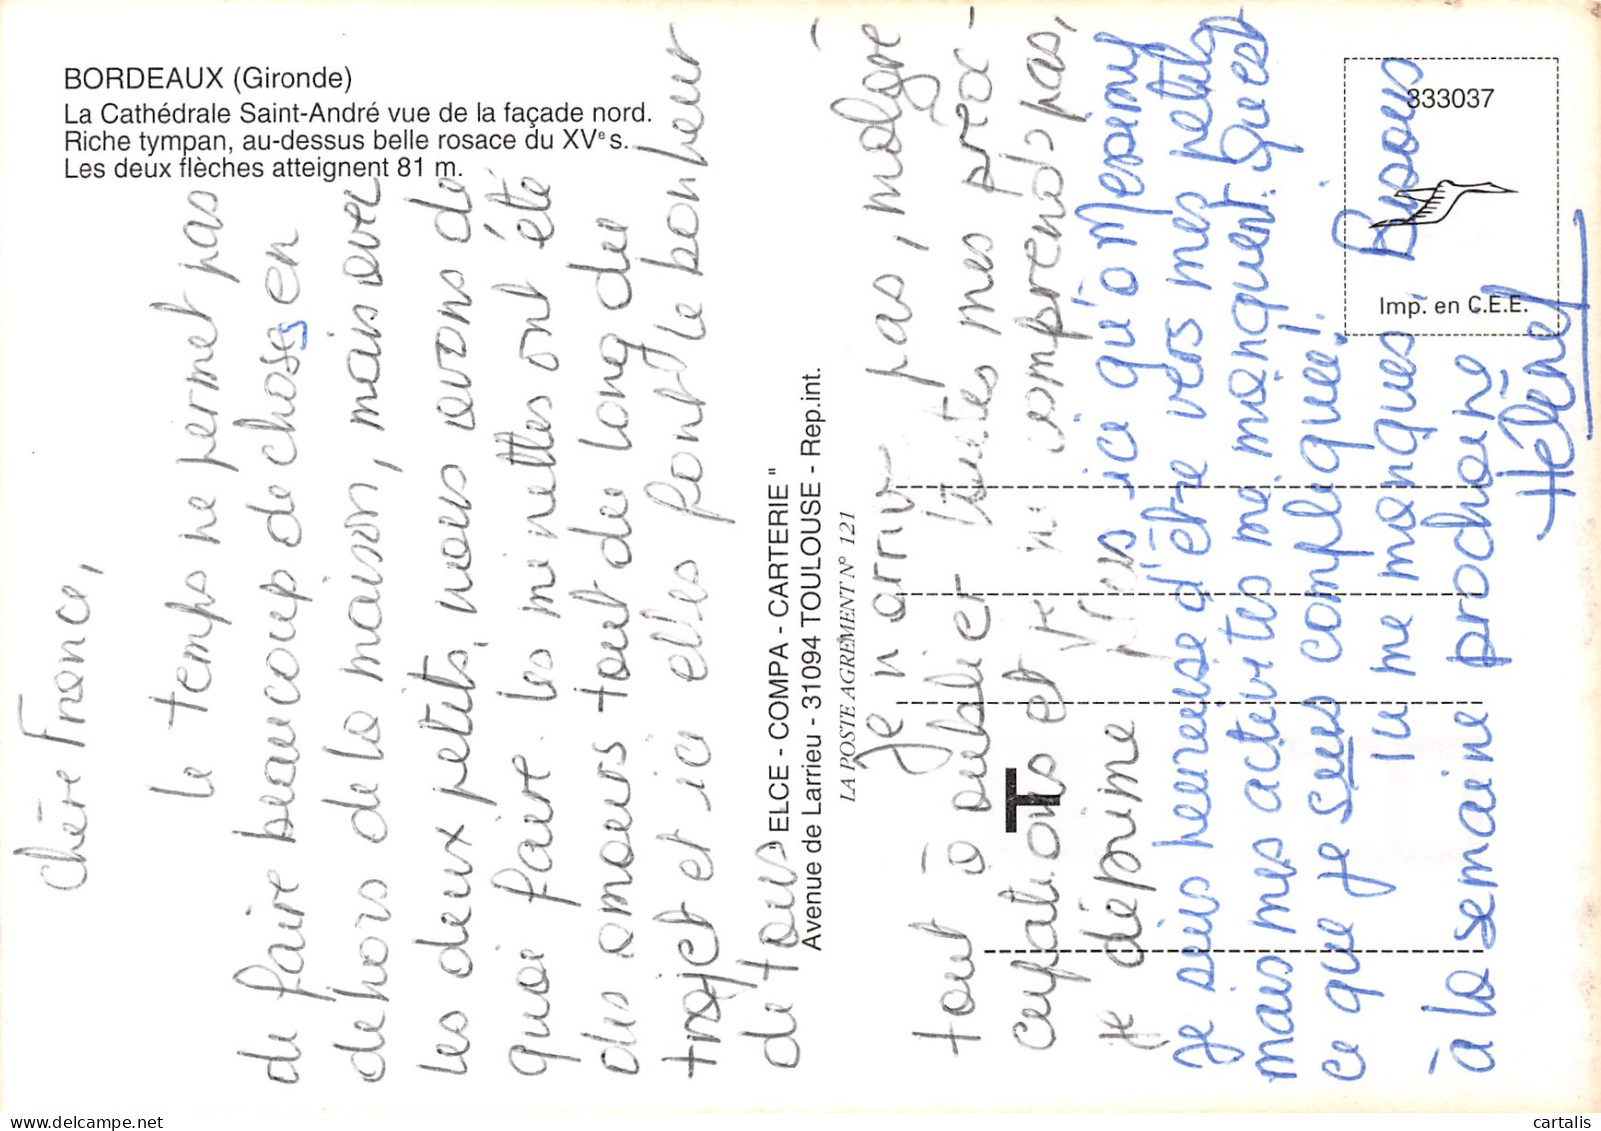 BORDEAUX (Gironde)
La Cathédrale Saint-André vue de la façade nord.
Riche tympan, au-dessus belle rosace du XVe s.
Les deux flèches atteignent 81 m.
Chère France,
Le temps ne permet pas
de faire beaucoup de choses en
dehors de la maison, mais avec
les deux petits, nous avons de
quoi faire. Les minettes ont été
des amours tout du long du
trajet et ici elles font le bonheur
de tous
"ELCE - COMPA - CARTERIE"
Avenue de Larrieu - 31094 TOULOUSE - Rep.int.
LA POSTE AGRÉMENT N° 121
Je n'arrive pas, malgré
tout à oublier toutes mes préoc-
cupations et je ne comprends pas,
je déprime plus ici qu'à Mesismy
Je suis heureuse d'être vers mes petits
mais mes activités me manquent. Qu'est
ce que je suis compliquée!
Tu me manques! Bisous
à la semaine prochaine
Hélène
T
333037
Imp. en C.E.E.
cartalis
delcampe.net